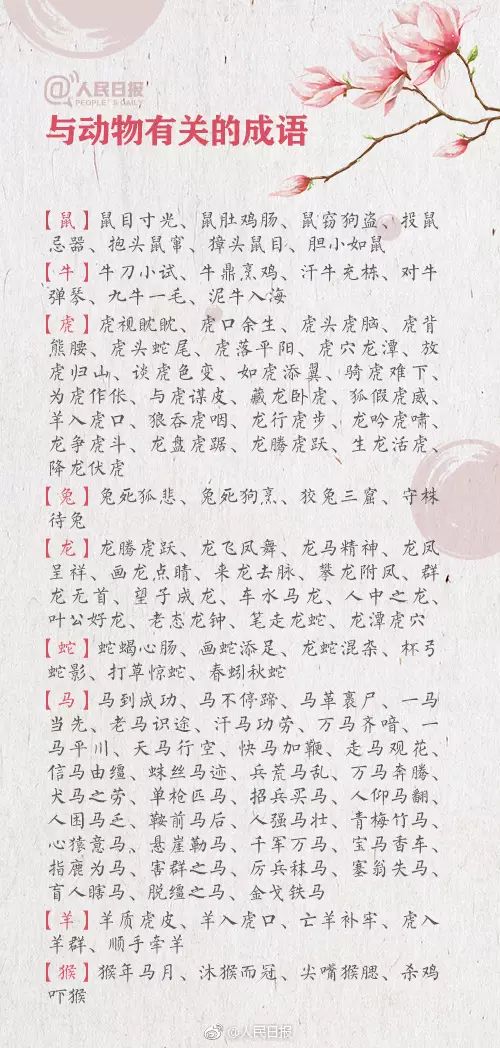 @人民日报
PEOPLE'S DAILY
与动物有关的成语
【鼠】鼠目寸光、鼠肚鸡肠、鼠窃狗盗、投鼠
忌器、抱头鼠窜、獐头鼠目、胆小如鼠
【牛】牛刀小试、牛鼎烹鸡、汗牛充栋、对牛
弹琴、九牛一毛、泥牛入海
【虎】虎视眈眈、虎口余生、虎头虎脑、虎背
熊腰、虎头蛇尾、虎落平阳、虎穴龙潭、放
虎归山、谈虎色变、如虎添翼、骑虎难下、
为虎作伥、与虎谋皮、藏龙卧虎、狐假虎威、
羊入虎口、狼吞虎咽、龙行虎步、龙吟虎啸、
龙争虎斗、龙盘虎踞、龙腾虎跃、生龙活虎、
降龙伏虎
【兔】兔死狐悲、兔死狗烹、狡兔三窟、守株
待兔
【龙】龙腾虎跃、龙飞凤舞、龙马精神、龙凤
呈祥、画龙点睛、来龙去脉、攀龙附凤、群
龙无首、望子成龙、车水马龙、人中之龙、
叶公好龙、老态龙钟、笔走龙蛇、龙潭虎穴
【蛇】蛇蝎心肠、画蛇添足、龙蛇混杂、杯弓
蛇影、打草惊蛇、春蚓秋蛇
【马】马到成功、马不停蹄、马革裹尸、一马
当先、老马识途、汗马功劳、万马齐喑、一
马平川、天马行空、快马加鞭、走马观花、
信马由缰、蛛丝马迹、兵荒马乱、万马奔腾、
犬马之劳、单枪匹马、招兵买马、人仰马翻、
人困马乏、鞍前马后、人强马壮、青梅竹马、
心猿意马、悬崖勒马、千军万马、宝马香车、
指鹿为马、害群之马、厉兵秣马、塞翁失马、
盲人瞎马、脱缰之马、金戈铁马
【羊】羊质虎皮、羊入虎口、亡羊补牢、虎入
羊群、顺手牵羊
【猴】猴年马月、沐猴而冠、尖嘴猴腮、杀鸡
吓猴
@人民日报